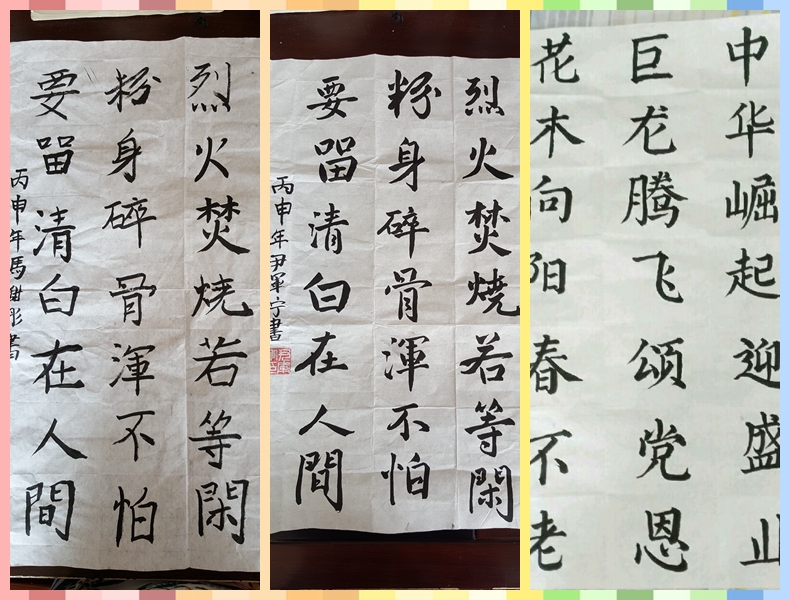 烈火焚烧若等閑
粉身碎骨渾不怕
要留清白在人間
丙申年馬書
烈火焚燒若等閑
粉身碎骨渾不怕
要留清白在人間
丙申年尹軍宁書
中华崛起迎盛
巨龙腾飞颂党恩
花木向阳春不老